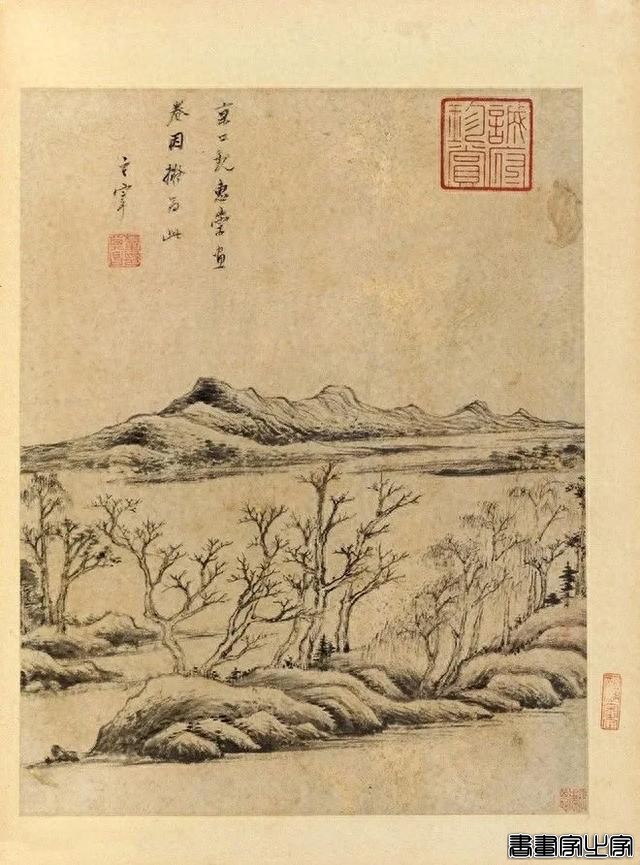 京口觀惠崇畫
卷因擬為此
玄宰
珍賞
書畫家之家